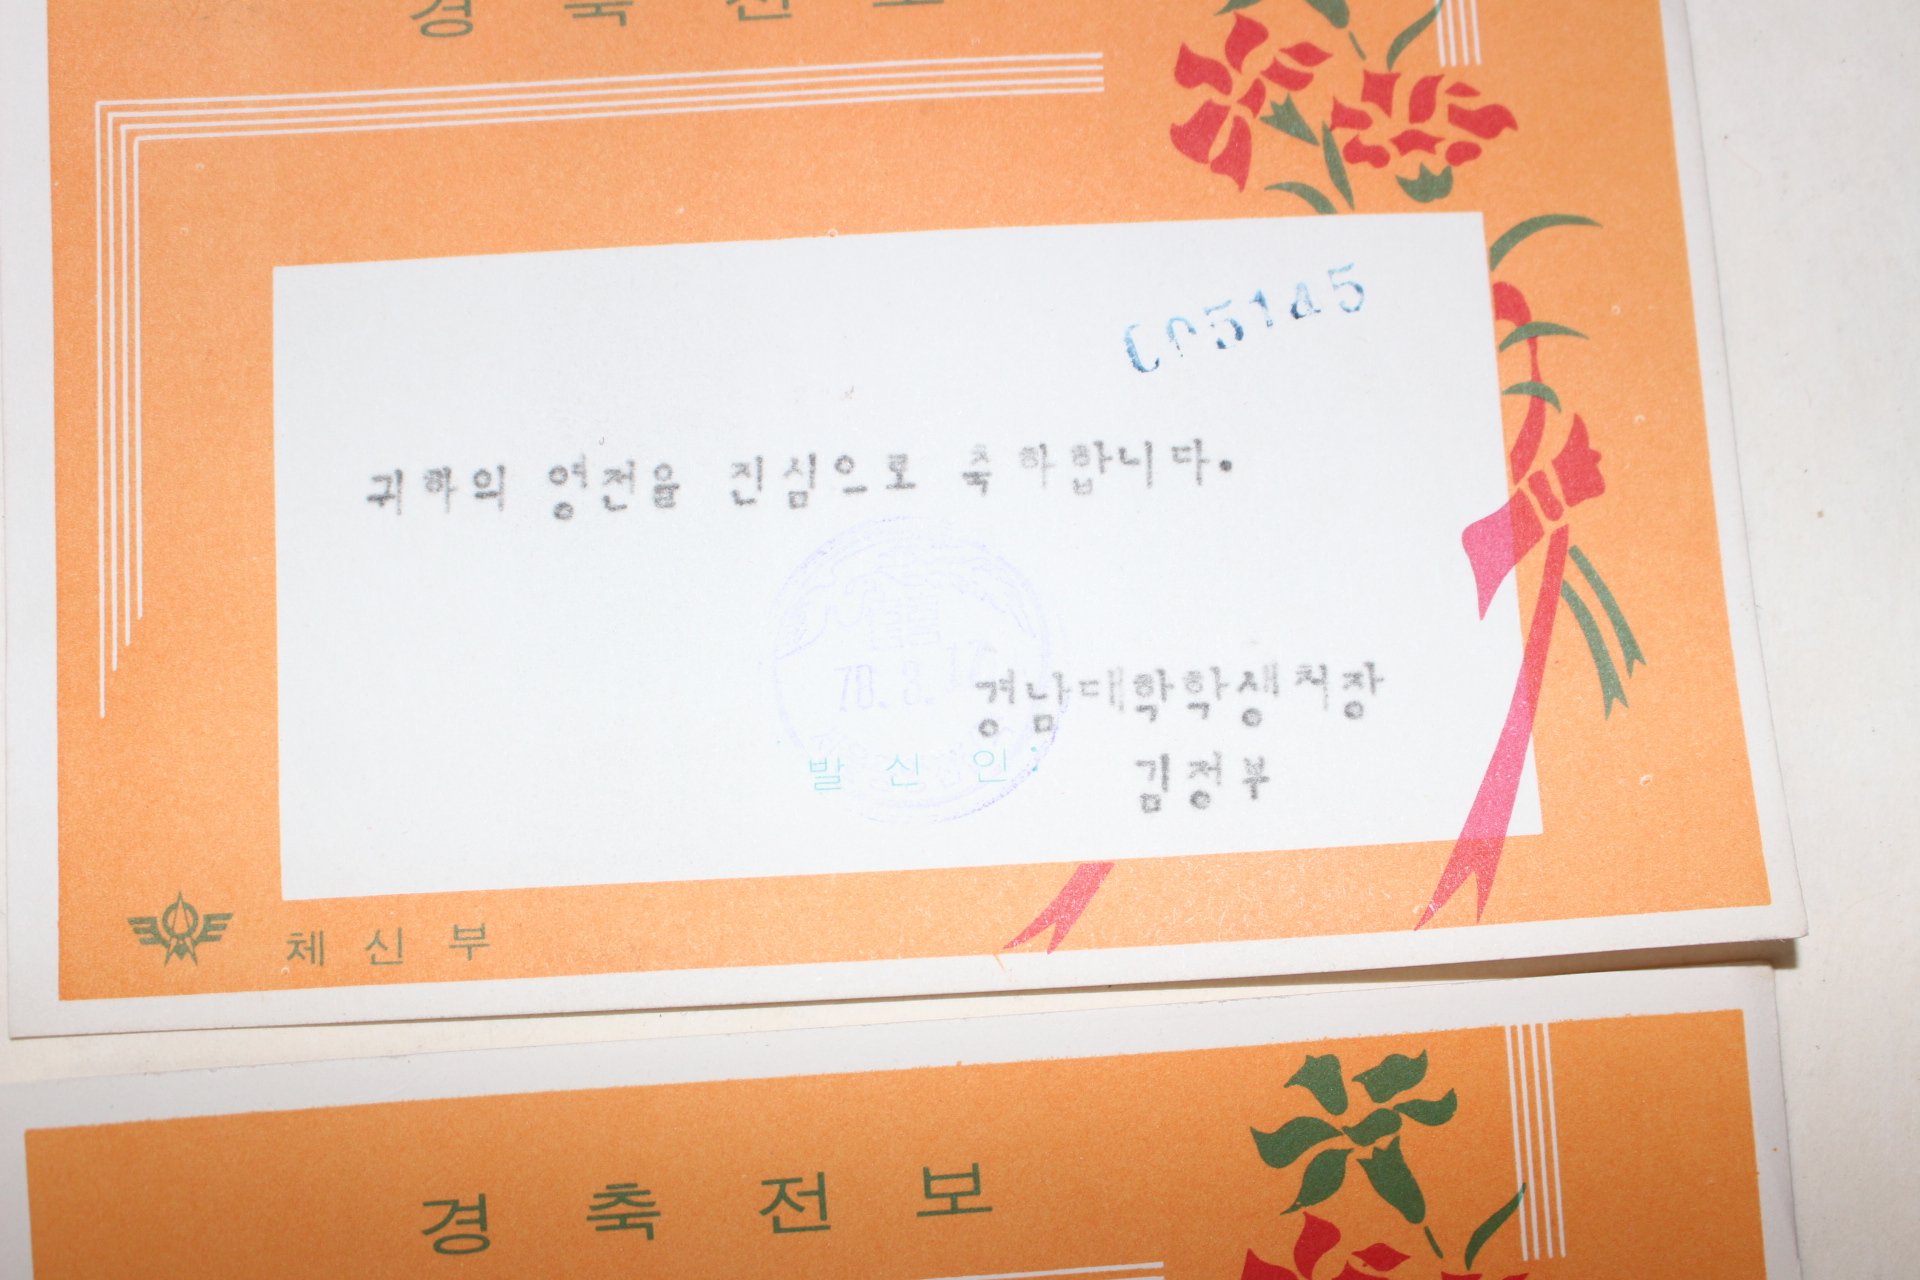 경축전보
005145
귀하의 영전을 진심으로 축하합니다.
78.3.17
경남대학학생처장
발신인:
김정부
체신부
경축전보